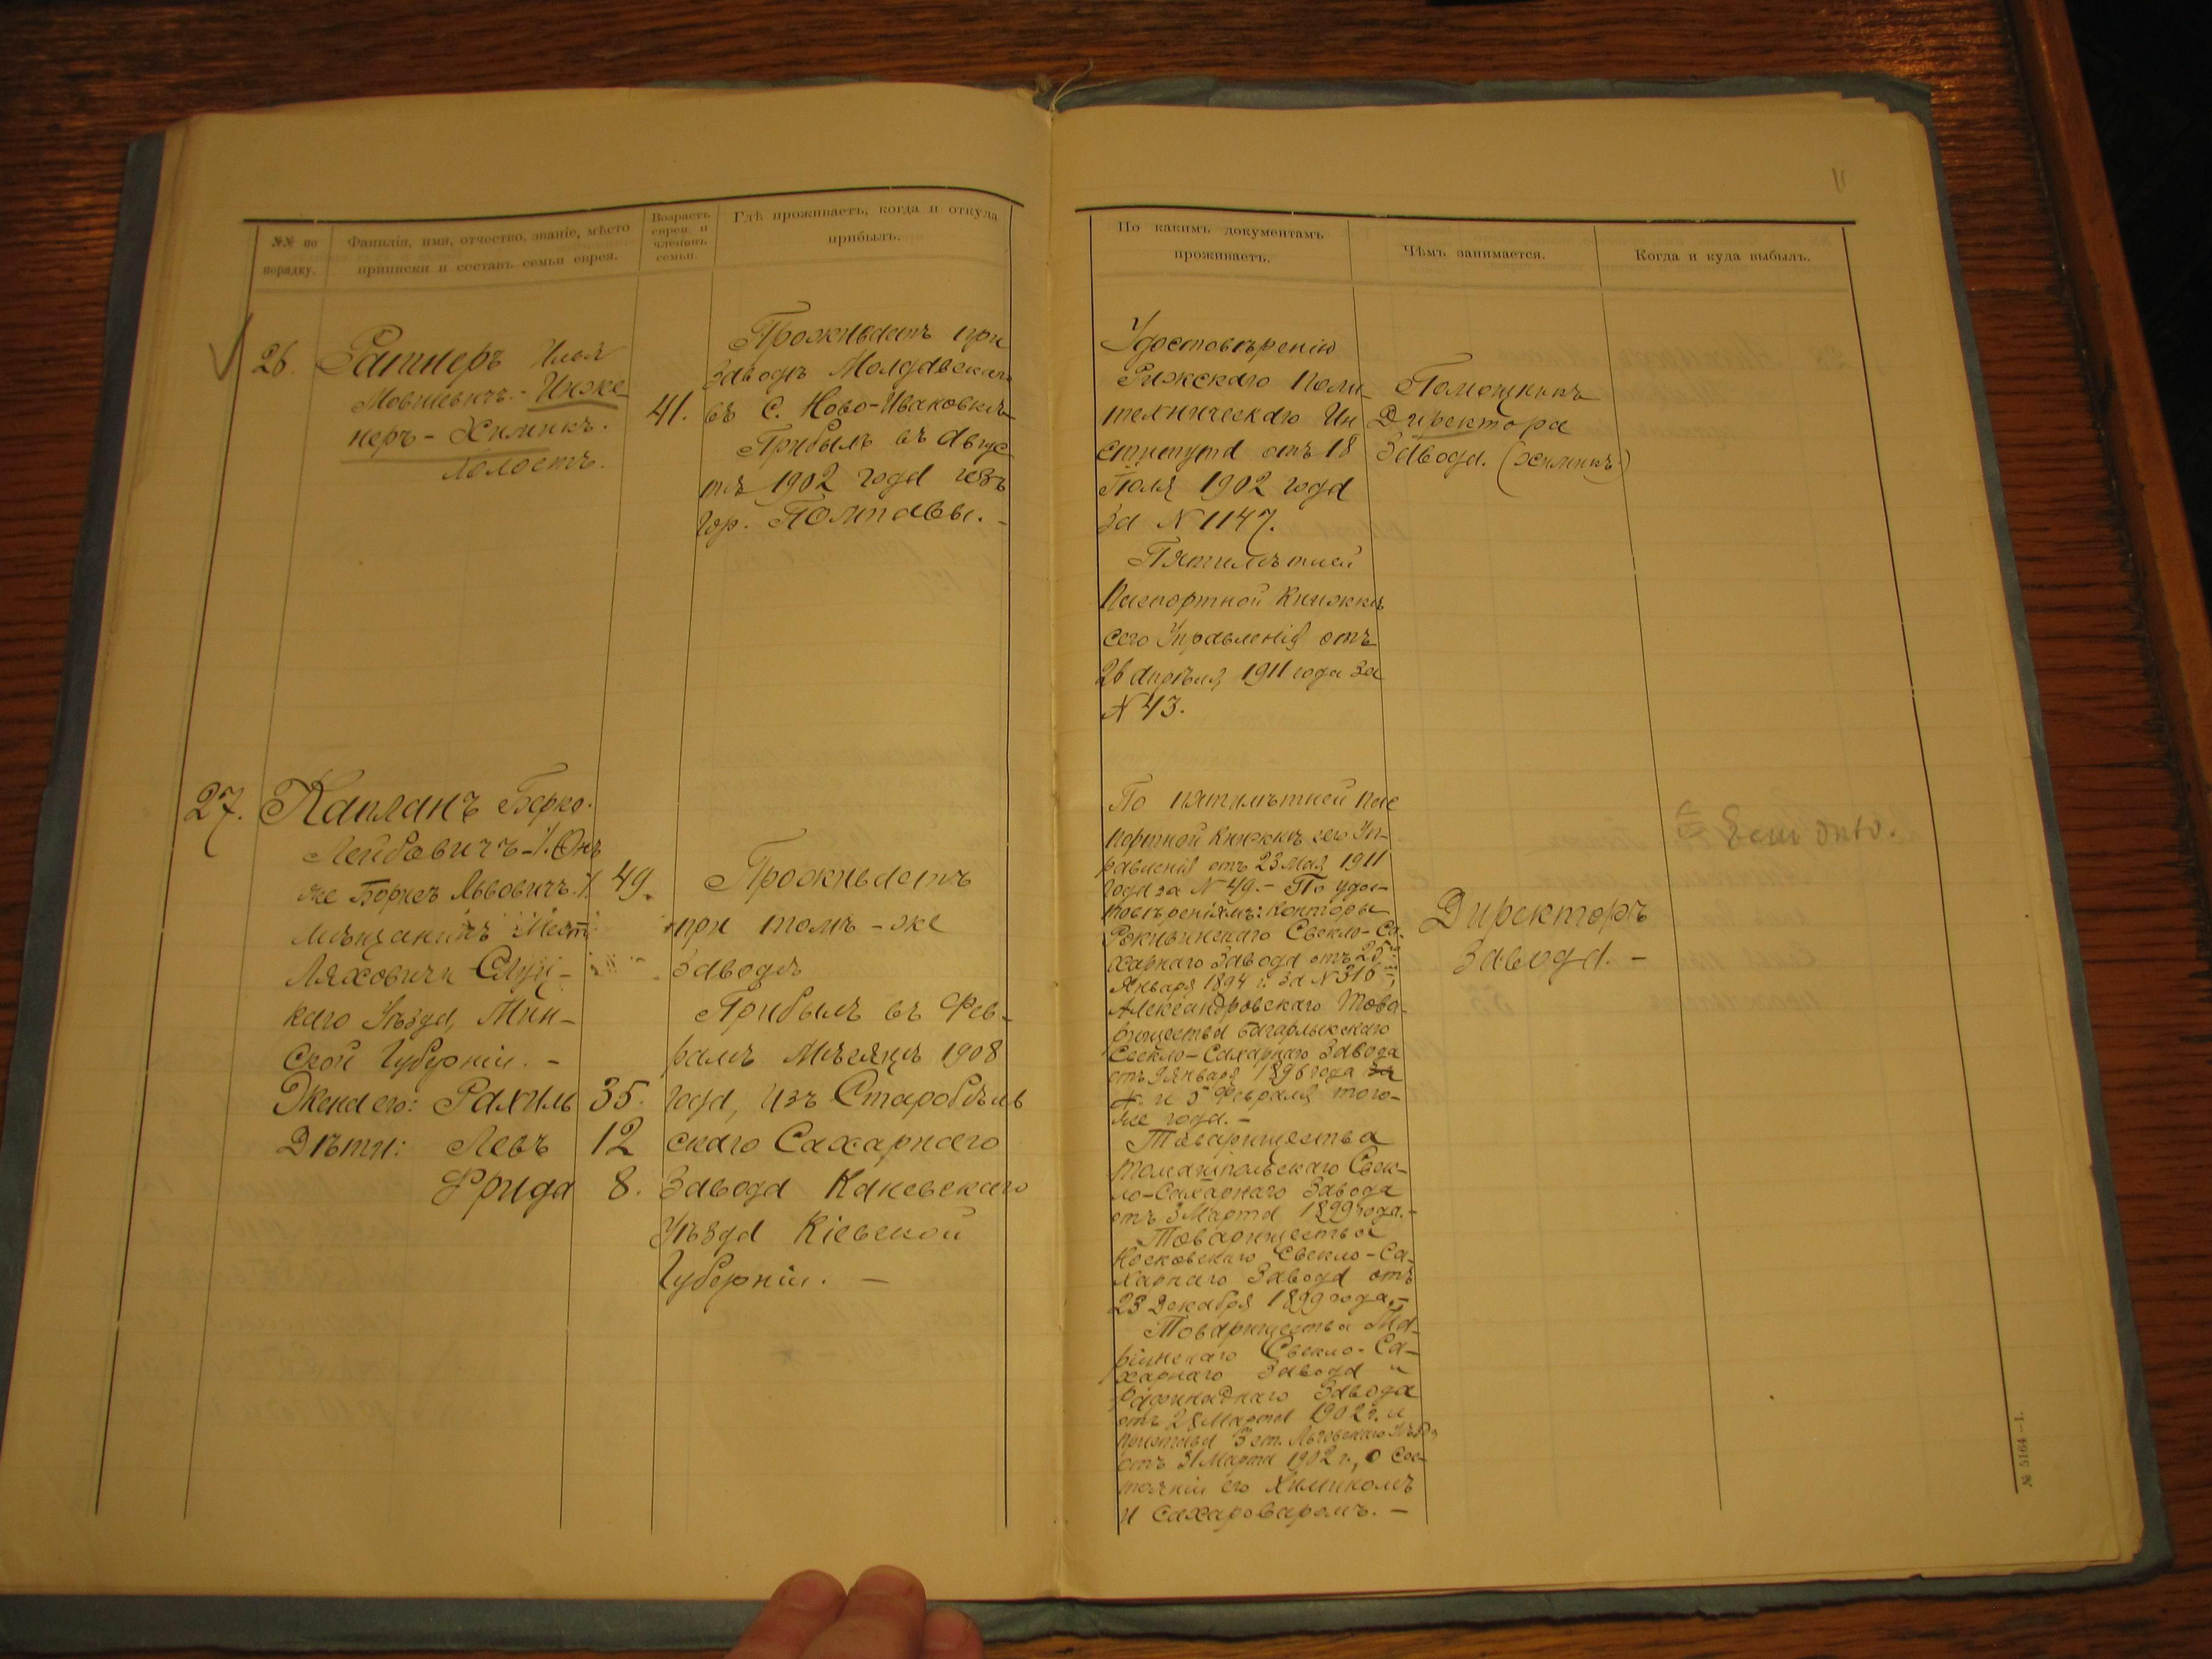 №№ по порядку.
Фамилія, имя, отчество, званіе, мѣсто приписки и составъ семьи еврея.
Возрастъ еврея и членовъ семьи.
Гдѣ проживаетъ, когда и откуда прибылъ.
По какимъ документамъ проживаетъ.
Чѣмъ занимается.
Когда и куда выбылъ.
26.
Ратнеръ Илья
Мовшевичъ. - Инже-
неръ - Химикъ.
Холостъ.
41.
Проживаетъ при
Заводѣ Молдавскаго
въ С. Ново-Ивановкѣ
Прибылъ въ Авгус
тѣ 1902 года изъ
гор. Полтавы. -
Удостовѣренію
Рижскаго Поли-
техническаго Ин
ститута отъ 18
Іюля 1902 года
за № 1147.
Пятилѣтней
Паспортной Книжкѣ
сего Управленія отъ
26 Апрѣля 1911 года за
№ 43.
Помощникъ
Директора
Завода. (Химикъ)
27.
Капланъ Берко.
Лейбовичъ - /. Онъ
же Борисъ Львовичъ. /.
мѣщанинъ Мест.
Ляховичи Слуц-
каго Уѣзда, Мин-
ской Губерніи. -
Жена его: Рахиль
Дѣти: Левъ
Фрида
49.
35.
12
8.
Проживаетъ
при томъ - же
Заводѣ
Прибылъ въ Фев-
ралѣ Мѣсяцѣ 1908
года, изъ Старобѣль
скаго Сахарнаго
Завода Каневскаго
Уѣзда Кіевской
Губерніи. -
По пятилѣтней пас
портной Книжкѣ сего Уп-
равленія отъ 23 Мая 1911
года за № 49. - По удос-
товѣреніямъ: Конторы
Свекло-Са-
харнаго Завода отъ 25го
Января 1894 г. за № 316
Александровскаго Това-
рищества
Свекло-Сахарнаго Завода
отъ 9 Января 1896 года за
№. и 5 Февраля того-
же года. -
Товарищества
Свек-
ло-Сахарнаго Завода
отъ 3 Марта 1899 года. -
Товарищества
Носковскаго Свекло-Са-
харнаго Завода отъ
23 Декабря 1899 года. -
Товарищества Ма-
ріинскаго Свекло-Са-
харнаго Завода и
Рафинаднаго Завода
отъ 28 Марта 1902 г. и
Пристава 3 ст. Льговскаго Уѣзда
отъ 31 Марта 1902 г., о сос-
тояніи его Химикомъ
и сахароваромъ. -
Директоръ
Завода. -
№ 5164 - 1.